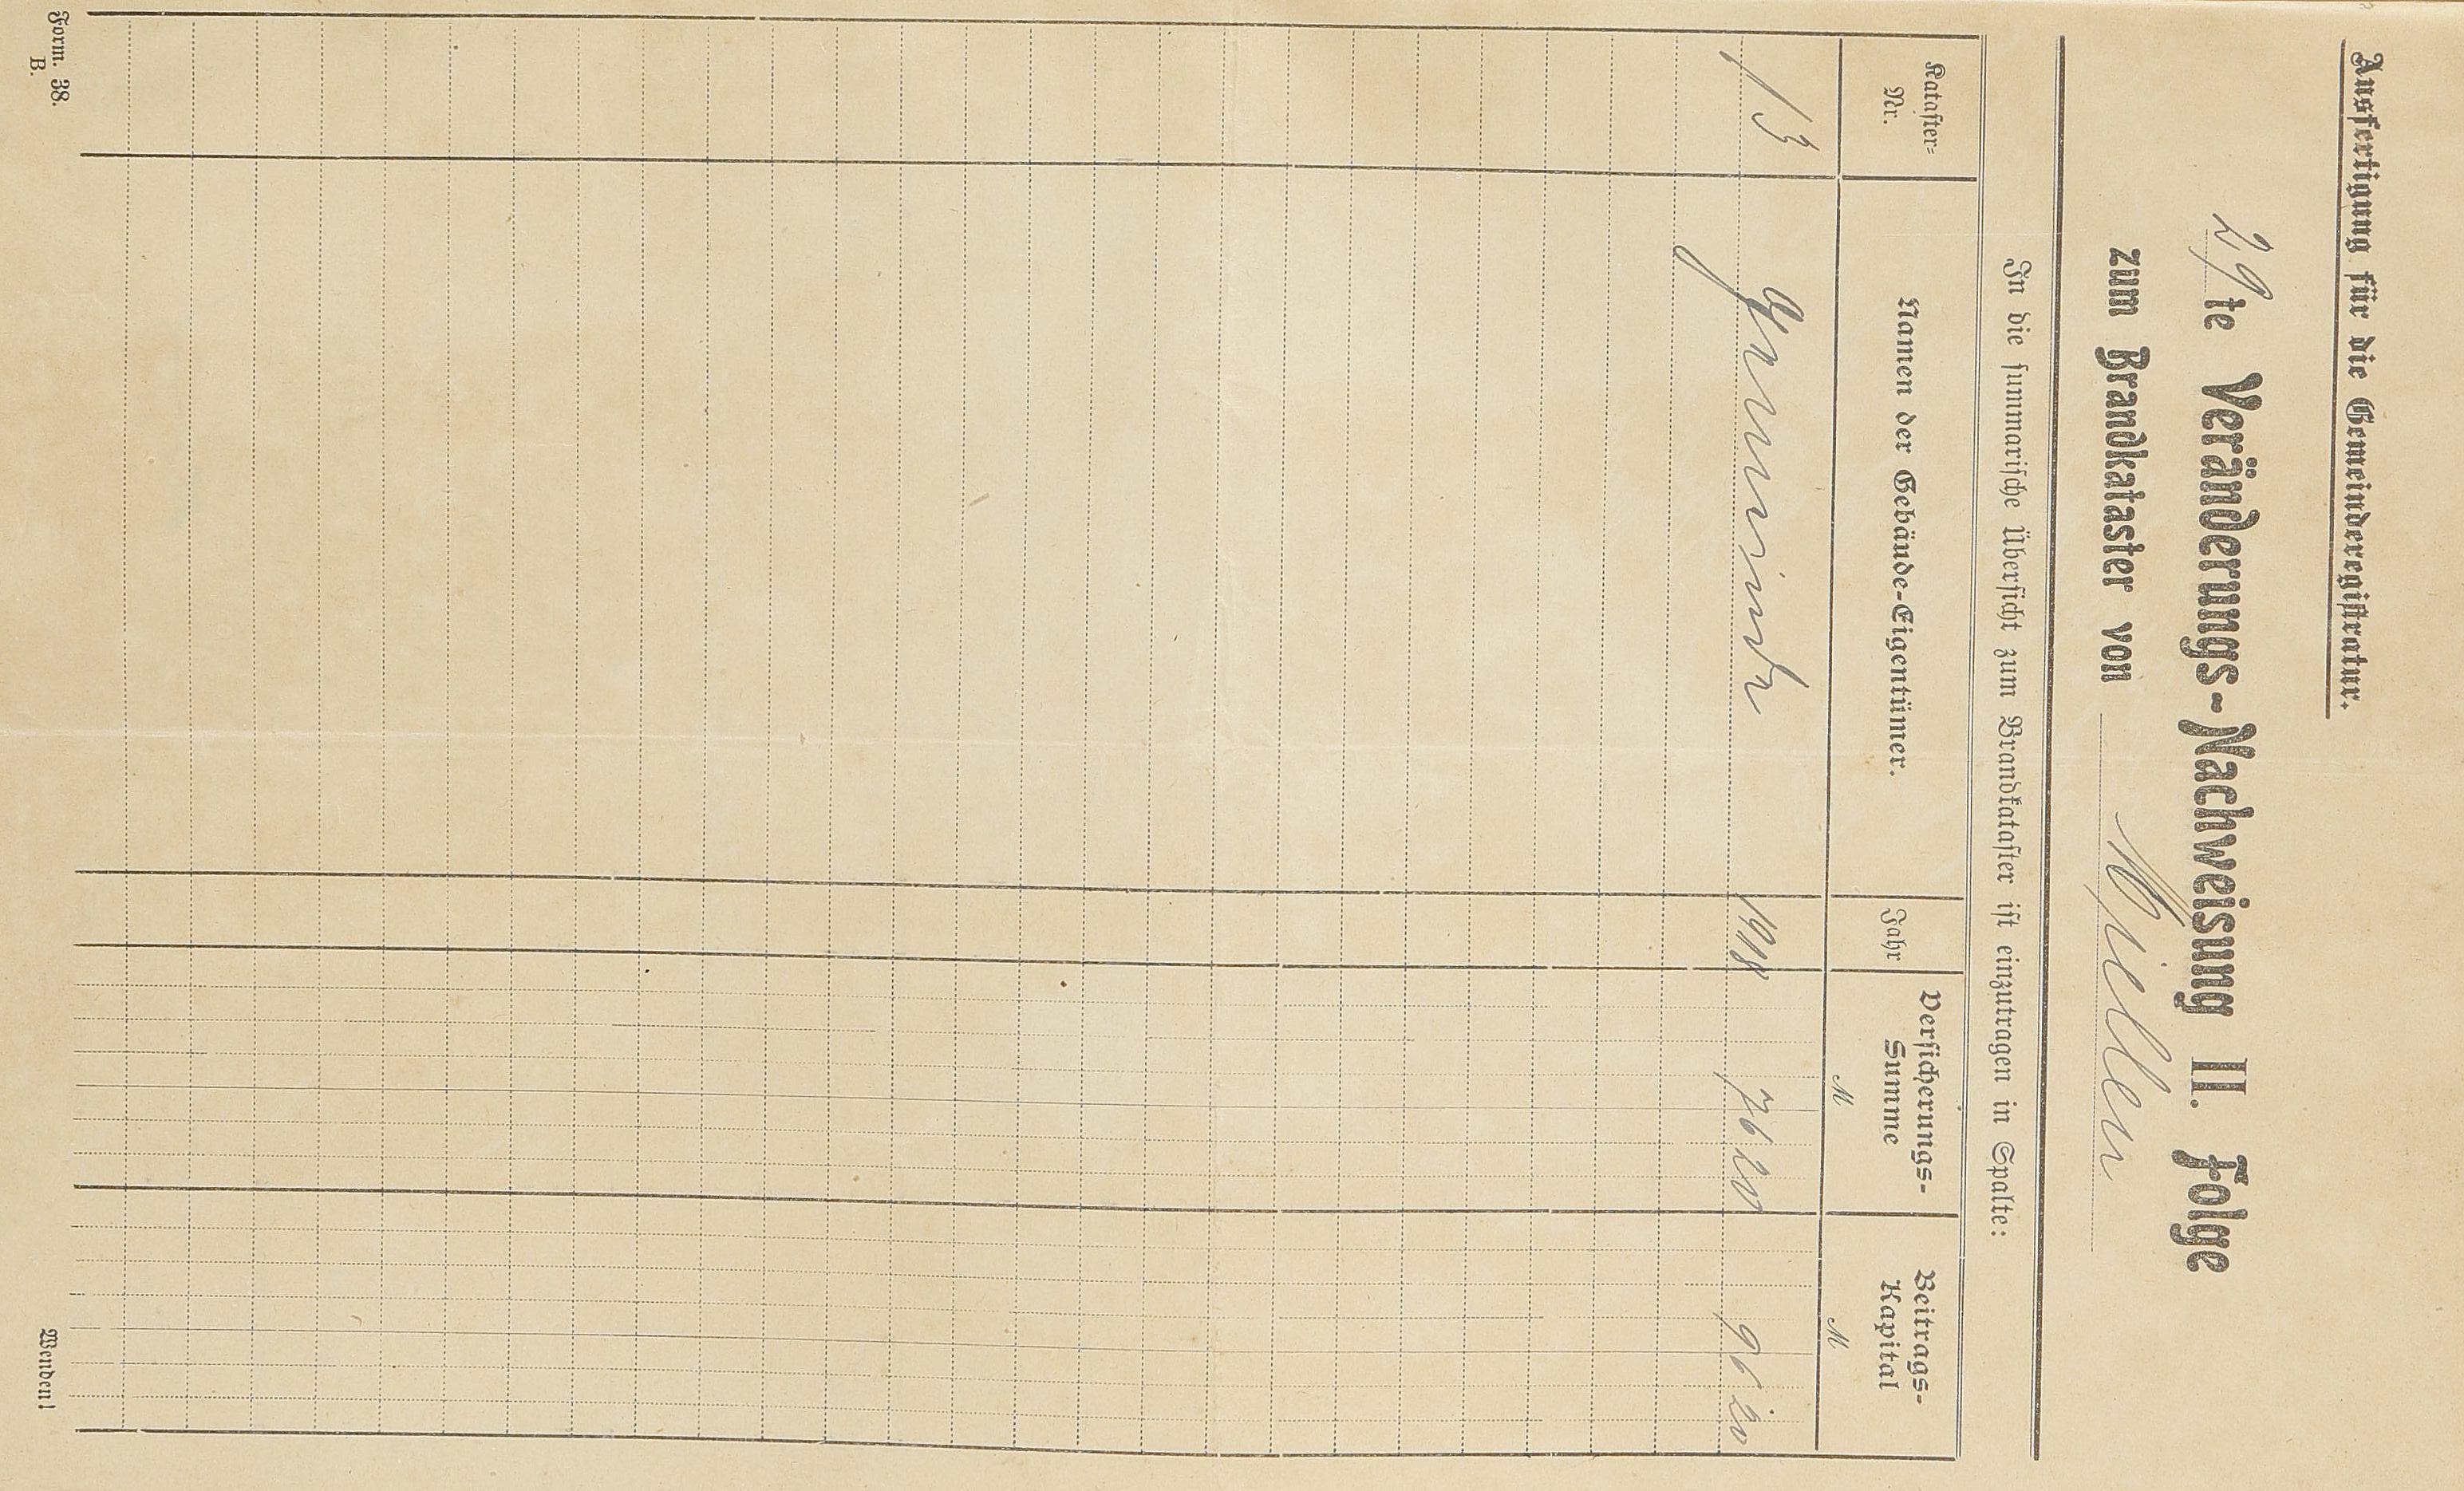 Ausfertigung für die Gemeinderegistratur.
29te Veränderungs-Nachweisung II. Folge
zum Brandkataster von
In die summarische Übersicht zum Brandkataster ist einzutragen in Spalte:
Kataster-
Nr.
Namen der Gebäude-Eigentümer.
Jahr
Versicherungs-
Summe
Beitrags-
Kapital
M
M
13 Gemeinde 1918 7620 9620
Form. 38.
B.
Wenden!